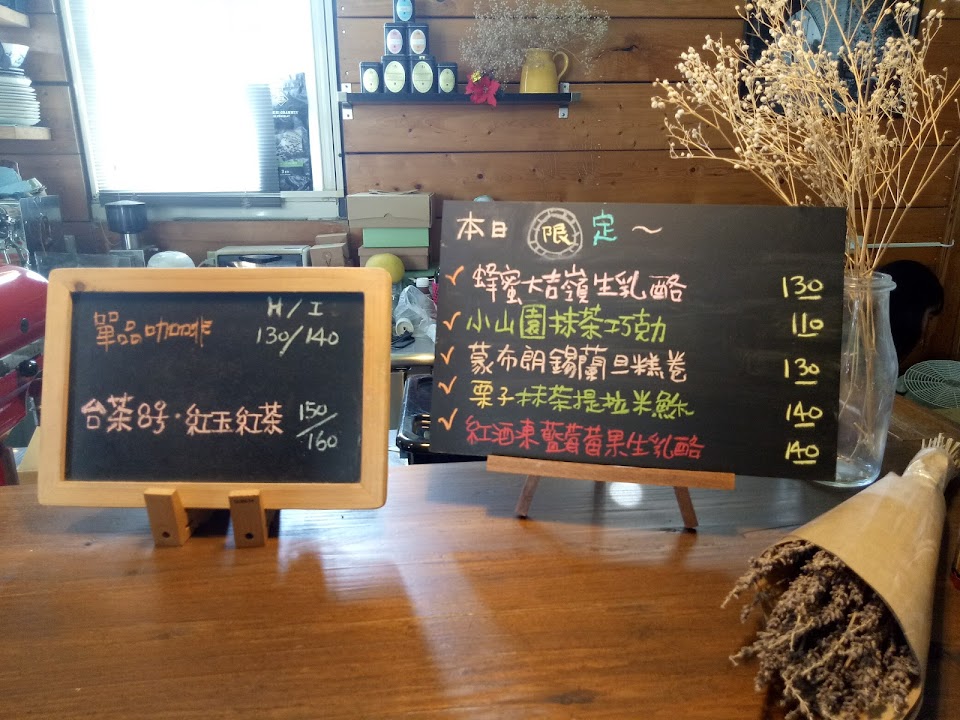 H / I
單品咖啡 130/140
台茶8号·紅玉紅茶 150/160
本日限定～
✓ 蜂蜜大吉嶺生乳酪 130
✓ 小山園抹茶巧克力 110
✓ 蒙布朗錫蘭旦糕卷 130
✓ 栗子抹茶提拉米酥 140
✓ 紅酒棗藍莓莓果生乳酪 140